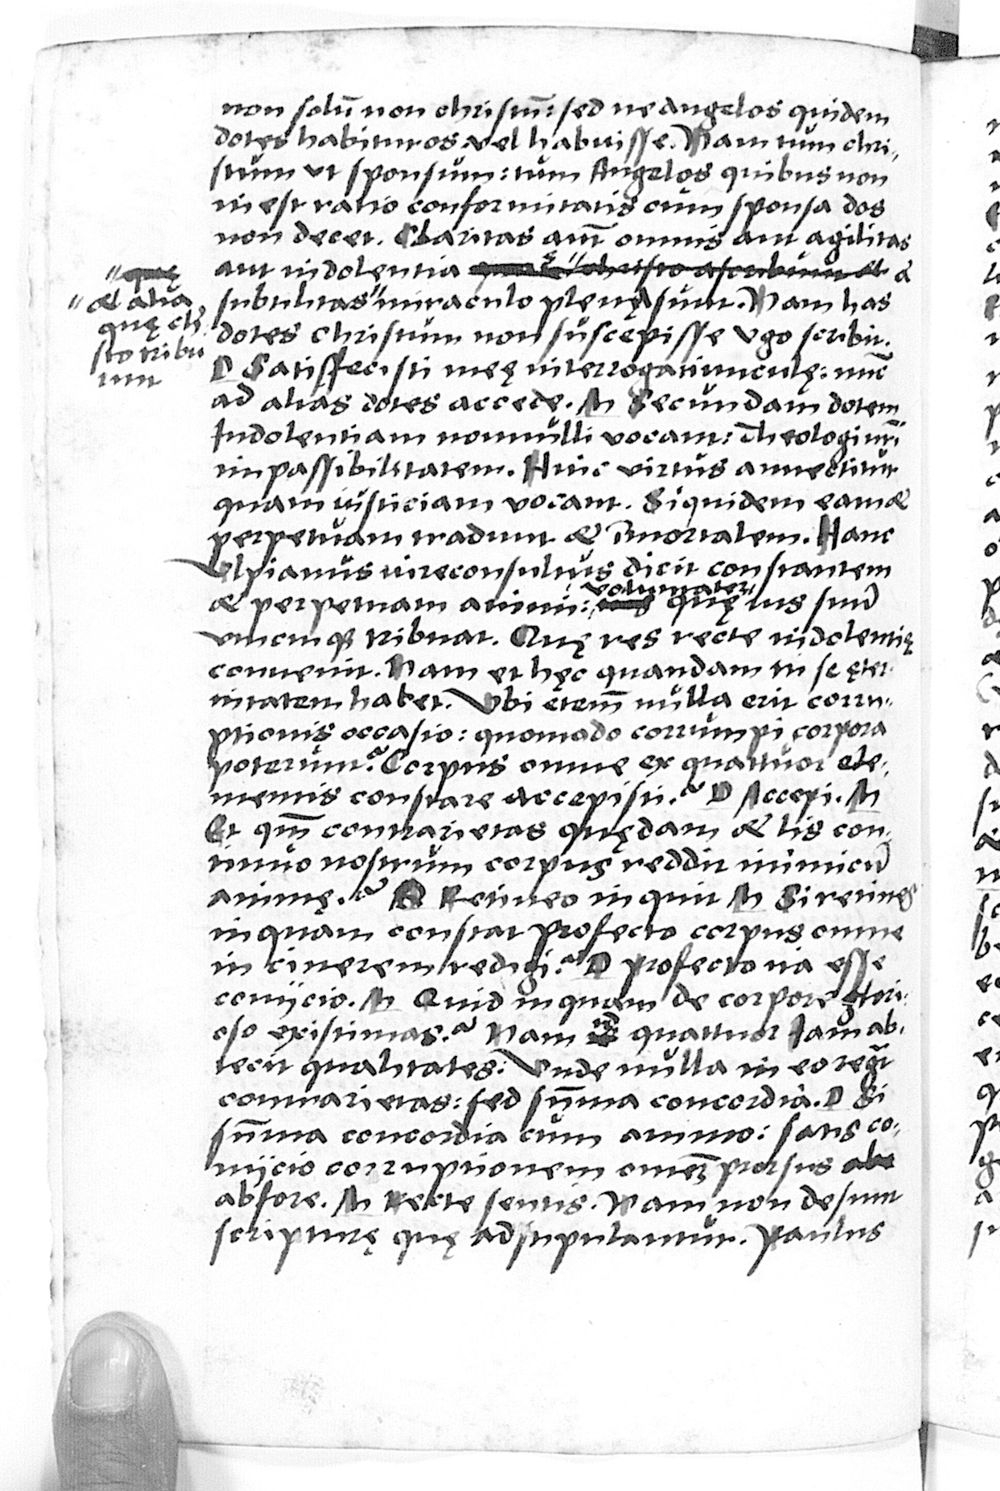 non solū non christū: sed ne angelos quidem
dotes habituros vel habuisse. Nam tum chri,
stum ut sponsum: tum Angelos quibus non
in est ratio conformitatis cum sponsa dos
non decet. Claritas aut̄ omnis aut agilitas
aut indolentia christo ascribunt et &
subtilitas" miraculo plenę sunt. Nam has
dotes christum non suscepisse Vgo scribit.
D Satisfecisti meę interrogatiunculę: nūc
ad alias dotes accede. M Secundam dotem
Indolentiam nonnulli vocant: Theologi nr̄i
impassibilitatem. Huic virtus annectitur
quam iusticiam vocant. Siquidem eam &
perpetuam tradunt & īmortalem. Hanc
Vlpianus iureconsultus dicit constantem
voluntatem
& perpetuam animi: quę ius suū
unicuiq; tribuat. Quę res recte indolentię
convenit. Nam et hęc quandam in se ęter,
nitatem habet. Vbi etem̄ nulla erit corru,
ptionis occasio: quomodo corrumpi corpora
poterunt? Corpus omne ex quattuor ele,
mentis constare accepisti? D Accepi. M
Et qm̄ contrarietas quędam & lis con,
tinuo nostrum corpus reddit inimicū
animę? D Retineo inquit M Si retines
inquam constat profecto corpus omne
in cinerem redigi? D Profecto ita esse
coniicio. M Quid inquam de corpore glori,
oso existimas? Nam id quattuor iam ab,
iecit qualitates: Vnde nulla in eo regn̄t
contrarietas: sed sūma concordia. D Si
sūma concordia cum animo: satis co,
niicio corruptionem omnē prorsus abe
abfore. M Recte sentis. Nam non desunt
scripturę quę adstipulantur. Paulus
"quę
"& alia
quę chr̄
sto tribu
unt